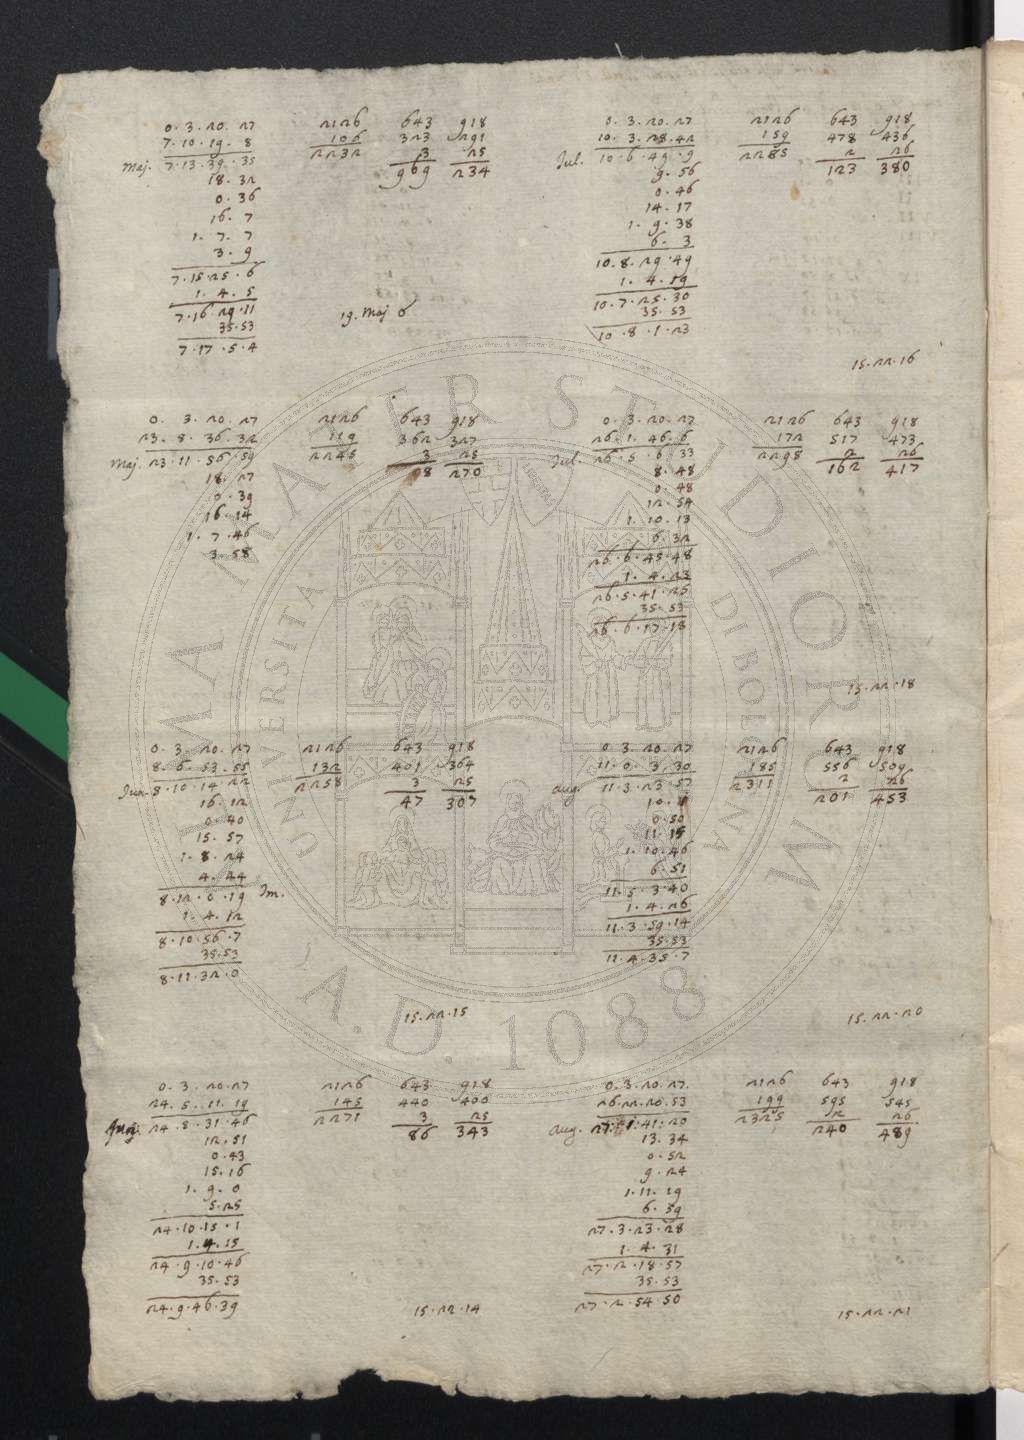 0. 3. 20. 27 2126 643 918
7. 10. 19. 8 106 323 291
Maj. 7. 13. 39. 35 2232 3 25
18. 32 969 234
0. 36
16. 7
1. 7. 7
3. 9
7. 15. 25. 6
1. 4. 5
7. 16. 29. 11
35. 53
7. 17. 5. 4
19. Maj 6
0. 3. 20. 27 2126 643 918
23. 8. 36. 32 119 362 327
Maj. 23. 11. 56. 59 2245 3 25
18. 27 08 270
0. 39
16. 14
1. 7. 46
3. 58
0. 3. 20. 27 2126 643 918
8. 6. 53. 55 132 401 364
Jun. 8. 10. 14. 22 2258 3 25
16. 12 47 307
0. 40
15. 57
1. 8. 24
4. 44
8. 12. 0. 19 Im.
1. 4. 12
8. 10. 56. 7
35. 53
8. 11. 32. 0
15. 22. 15
0. 3. 20. 27 2126 643 918
24. 5. 11. 19 145 440 400
Junj. 24. 8. 31. 46 2271 3 25
12. 51 86 343
0. 43
15. 16
1. 9. 0
5. 25
24. 10. 15. 1
1. 4. 15
24. 9. 10. 46
35. 53
24. 9. 46. 39
15. 22. 14
0. 3. 20. 27 2126 643 918
10. 3. 28. 42 159 478 436
Jul. 10. 6. 49. 9 2285 2 26
9. 56 123 380
0. 46
14. 17
1. 9. 38
6. 3
10. 8. 29. 49
1. 4. 19
10. 7. 25. 30
35. 53
10. 8. 1. 23
15. 22. 16
0. 3. 20. 27 2126 643 918
26. 1. 46. 6 172 517 473
Jul. 26. 5. 6. 33 2298 2 26
8. 48 162 417
0. 48
12. 54
1. 10. 13
6. 32
26. 6. 45. 48
1. 4. 23
26. 5. 41. 25
35. 53
26. 6. 17. 18
15. 22. 18
0. 3. 20. 27 2126 643 918
11. 0. 3. 30 185 556 509
aug. 11. 3. 23. 57 2311 2 26
201 453
0. 50
11. 15
1. 10. 46
6. 51
11. 5. 3. 40
1. 4. 26
11. 3. 59. 14
35. 53
11. 4. 35. 7
15. 22. 20
0. 3. 20. 27. 2126 643 918
26. 22. 20. 53 199 595 545
aug. 27. 1. 41. 20 2325 2 26
13. 34 240 489
0. 52
9. 24
1. 11. 19
6. 39
27. 3. 23. 28
1. 4. 31
27. 2. 18. 57
35. 53
27. 2. 54. 50
15. 22. 21
ALMA MATER STUDIORUM
UNIVERSITA DI BOLOGNA
A.D. 1088